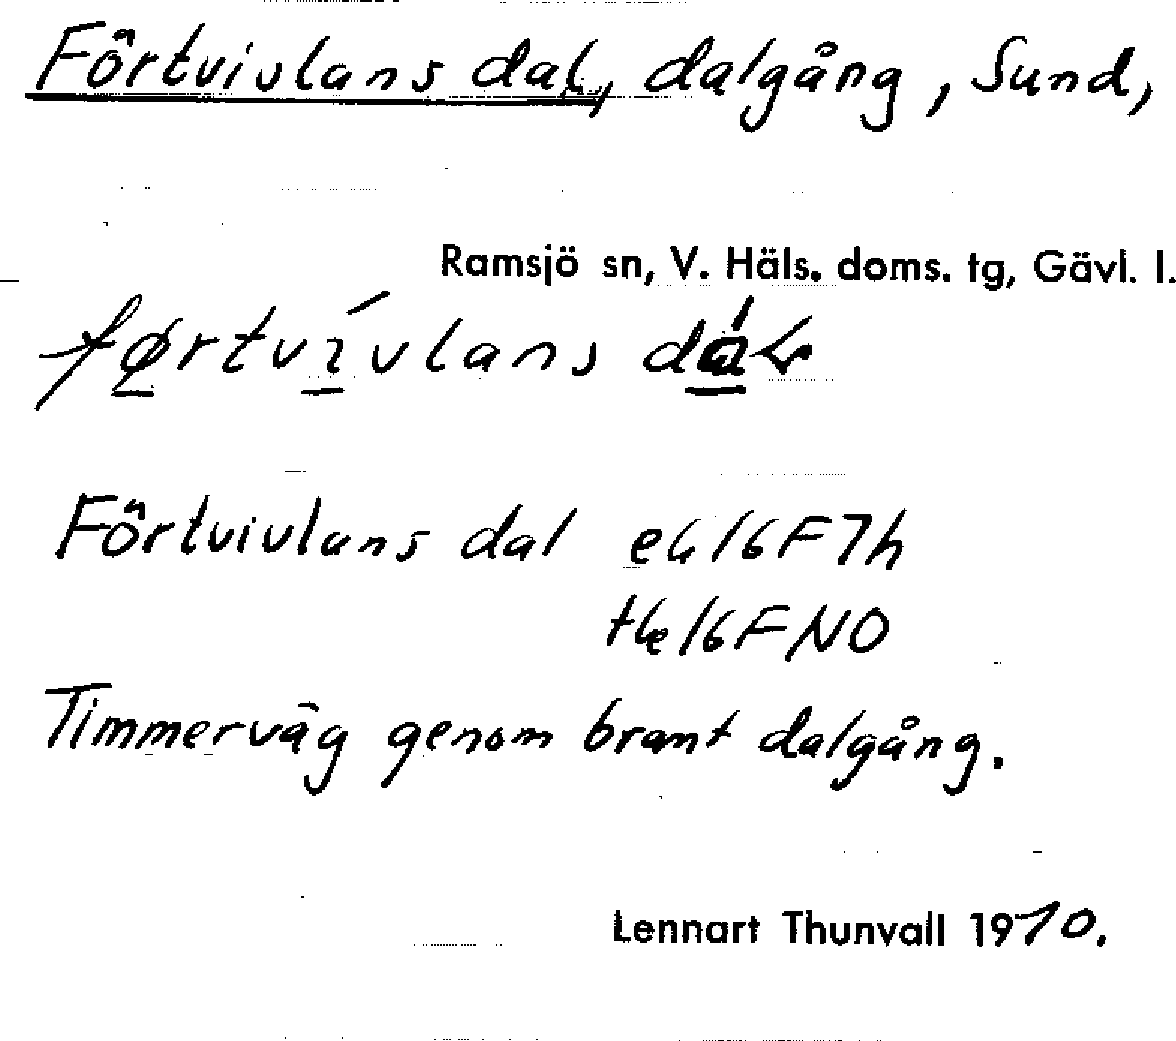 Förtvivlans dal, dalgång, Sund,
Ramsjö sn, V. Häls. doms. tg, Gävl. l.
Förtvivlans dal ek 16F7h
tk 16F NO
Timmerväg genom brant dalgång.
Lennart Thunvall 1970.